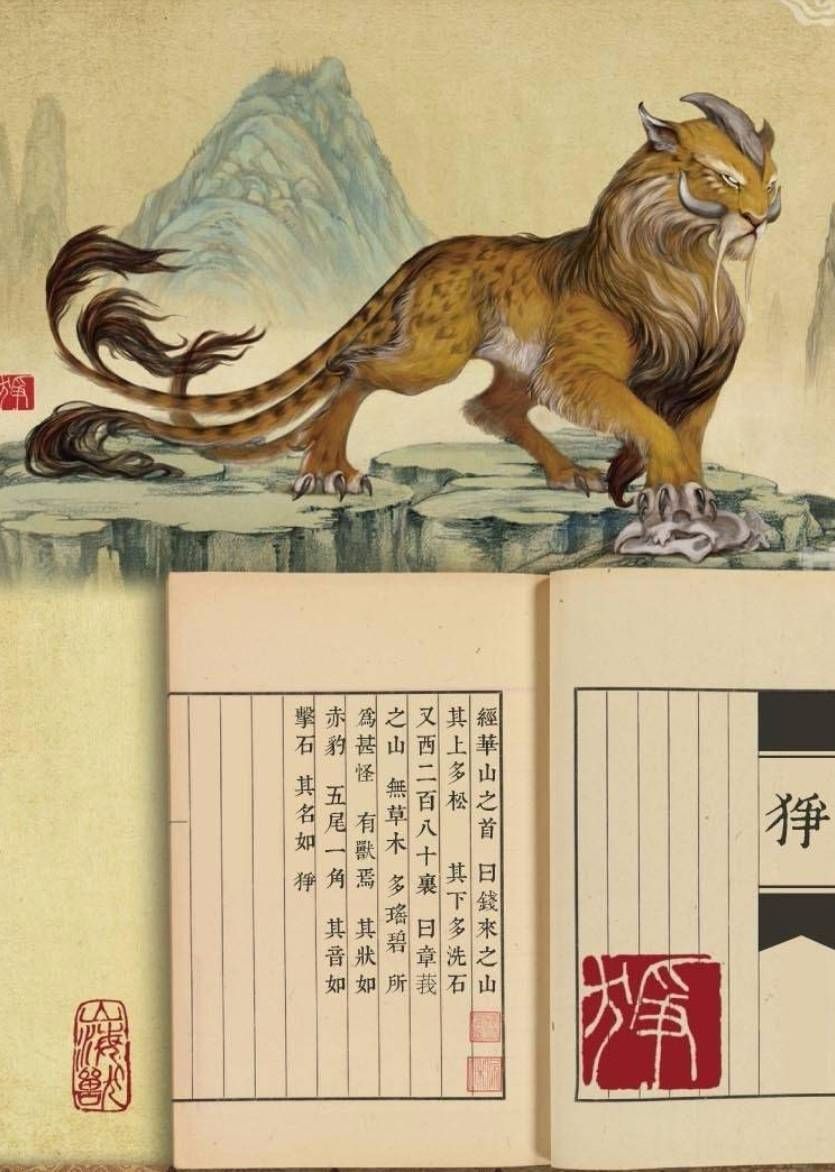 經華山之首 曰錢來之山
其上多松 其下多洗石
又西二百八十裏 曰章莪
之山 無草木 多瑤碧 所
為甚怪 有獸焉 其狀如
赤豹 五尾一角 其音如
擊石 其名如 猙
猙
猙
猙
山海獸